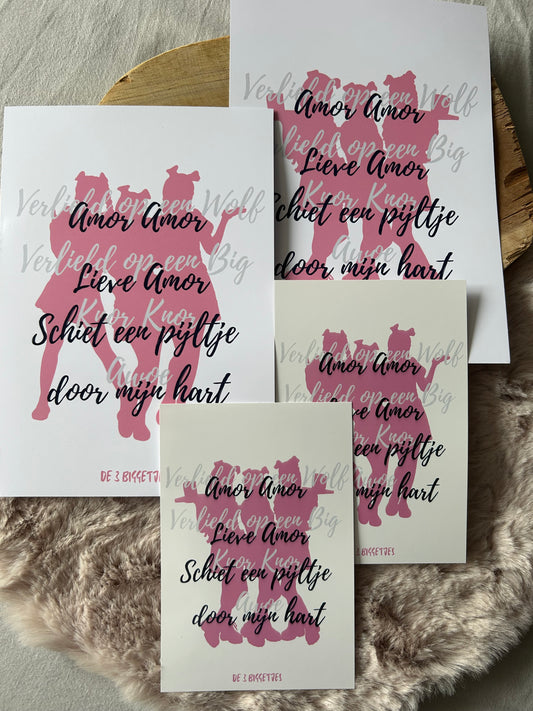 Verliefd op een Wolf
Amor Amor
Verliefd op een Big
Lieve Amor
Knor Knor
Schiet een pijltje
Awoe
door mijn hart
Verliefd op een Wolf
Amor Amor
Verliefd op een Big
Lieve Amor
Knor Knor
Schiet een pijltje
Awoe
door mijn hart
DE 3 BIGGETJES
Verliefd op een Wolf
Amor Amor
Verliefd op een Big
Lieve Amor
Knor Knor
Schiet een pijltje
door mijn hart
DE 3 BIGGETJES
Verliefd op een Wolf
Amor Amor
Verliefd op een Big
Lieve Amor
Knor Knor
Schiet een pijltje
Awoe
door mijn hart
DE 3 BIGGETJES